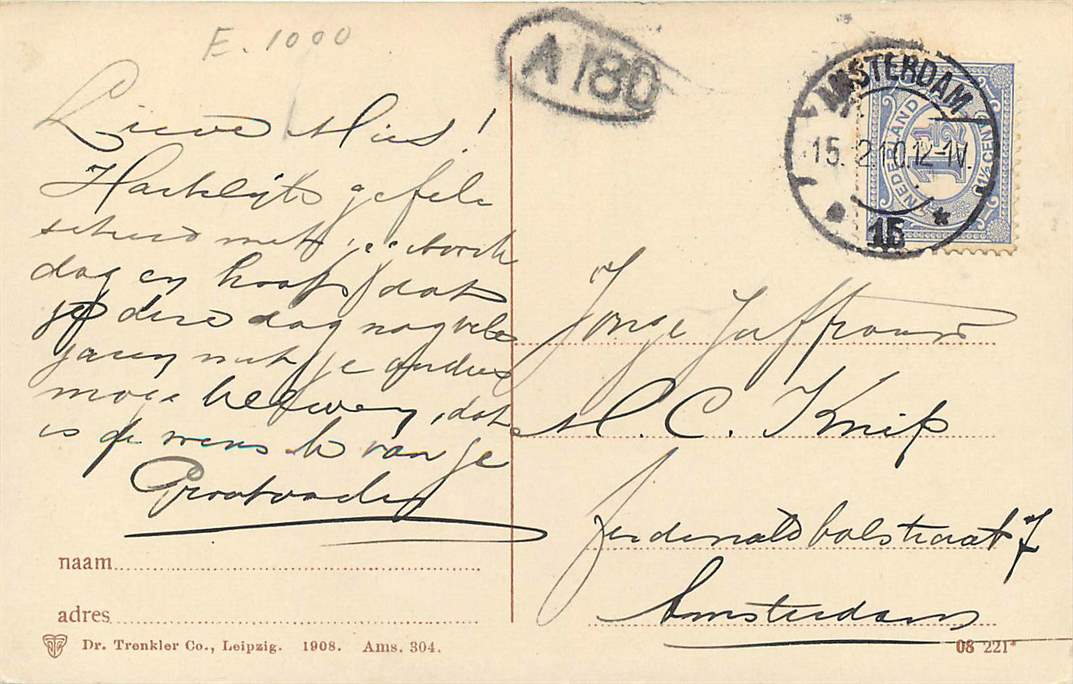 E. 1000
A 180
AMSTERDAM
15. 2 10. 12-1V.
15
NEDERLAND
1½
1½ CENT
Lieve Mies!
Hartelijk gefeli
met je
dag en hoop dat
je deze dag nog vele
jaren met je ouders
moge beleven, dat
is de wens van je
Grootvader
Jonge Juffrouw
M. C. Knip
Ferdenand bolstraat 7
Amsterdam
naam
adres
Dr. Trenkler Co., Leipzig. 1908. Ams. 304.
08 221*